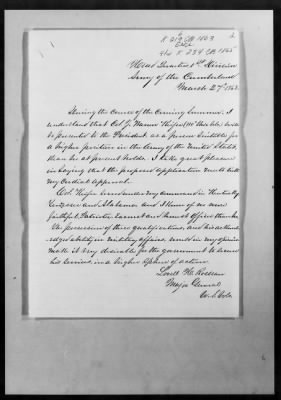 K 219 CB 1863
K 234 CB 1865
Head Quarters 1st Division
Army of the Cumberland
March 27th 1863.
During the course of the coming summer, I
understand that Col J. Warren Keifer 110th Ohio Vols. will
be presented to the President as a person suitable for
a higher position in the Army of the United States,
than he at present holds. I take great pleasure
in saying that the proposed application meets with
my cordial approval.
Col. Keifer served under my command in Kentucky
Tennessee and Alabama and I know of no more
faithful, Patriotic, Earnest and honest Officer than he.
The possession of these qualifications, and his acknowl-
edged ability in Military Affairs, would in my opinion
make it very desirable for the government to secure
his services, in a higher sphere of action.
Lovell H. Rousseau
Major General
U.S. Vols.